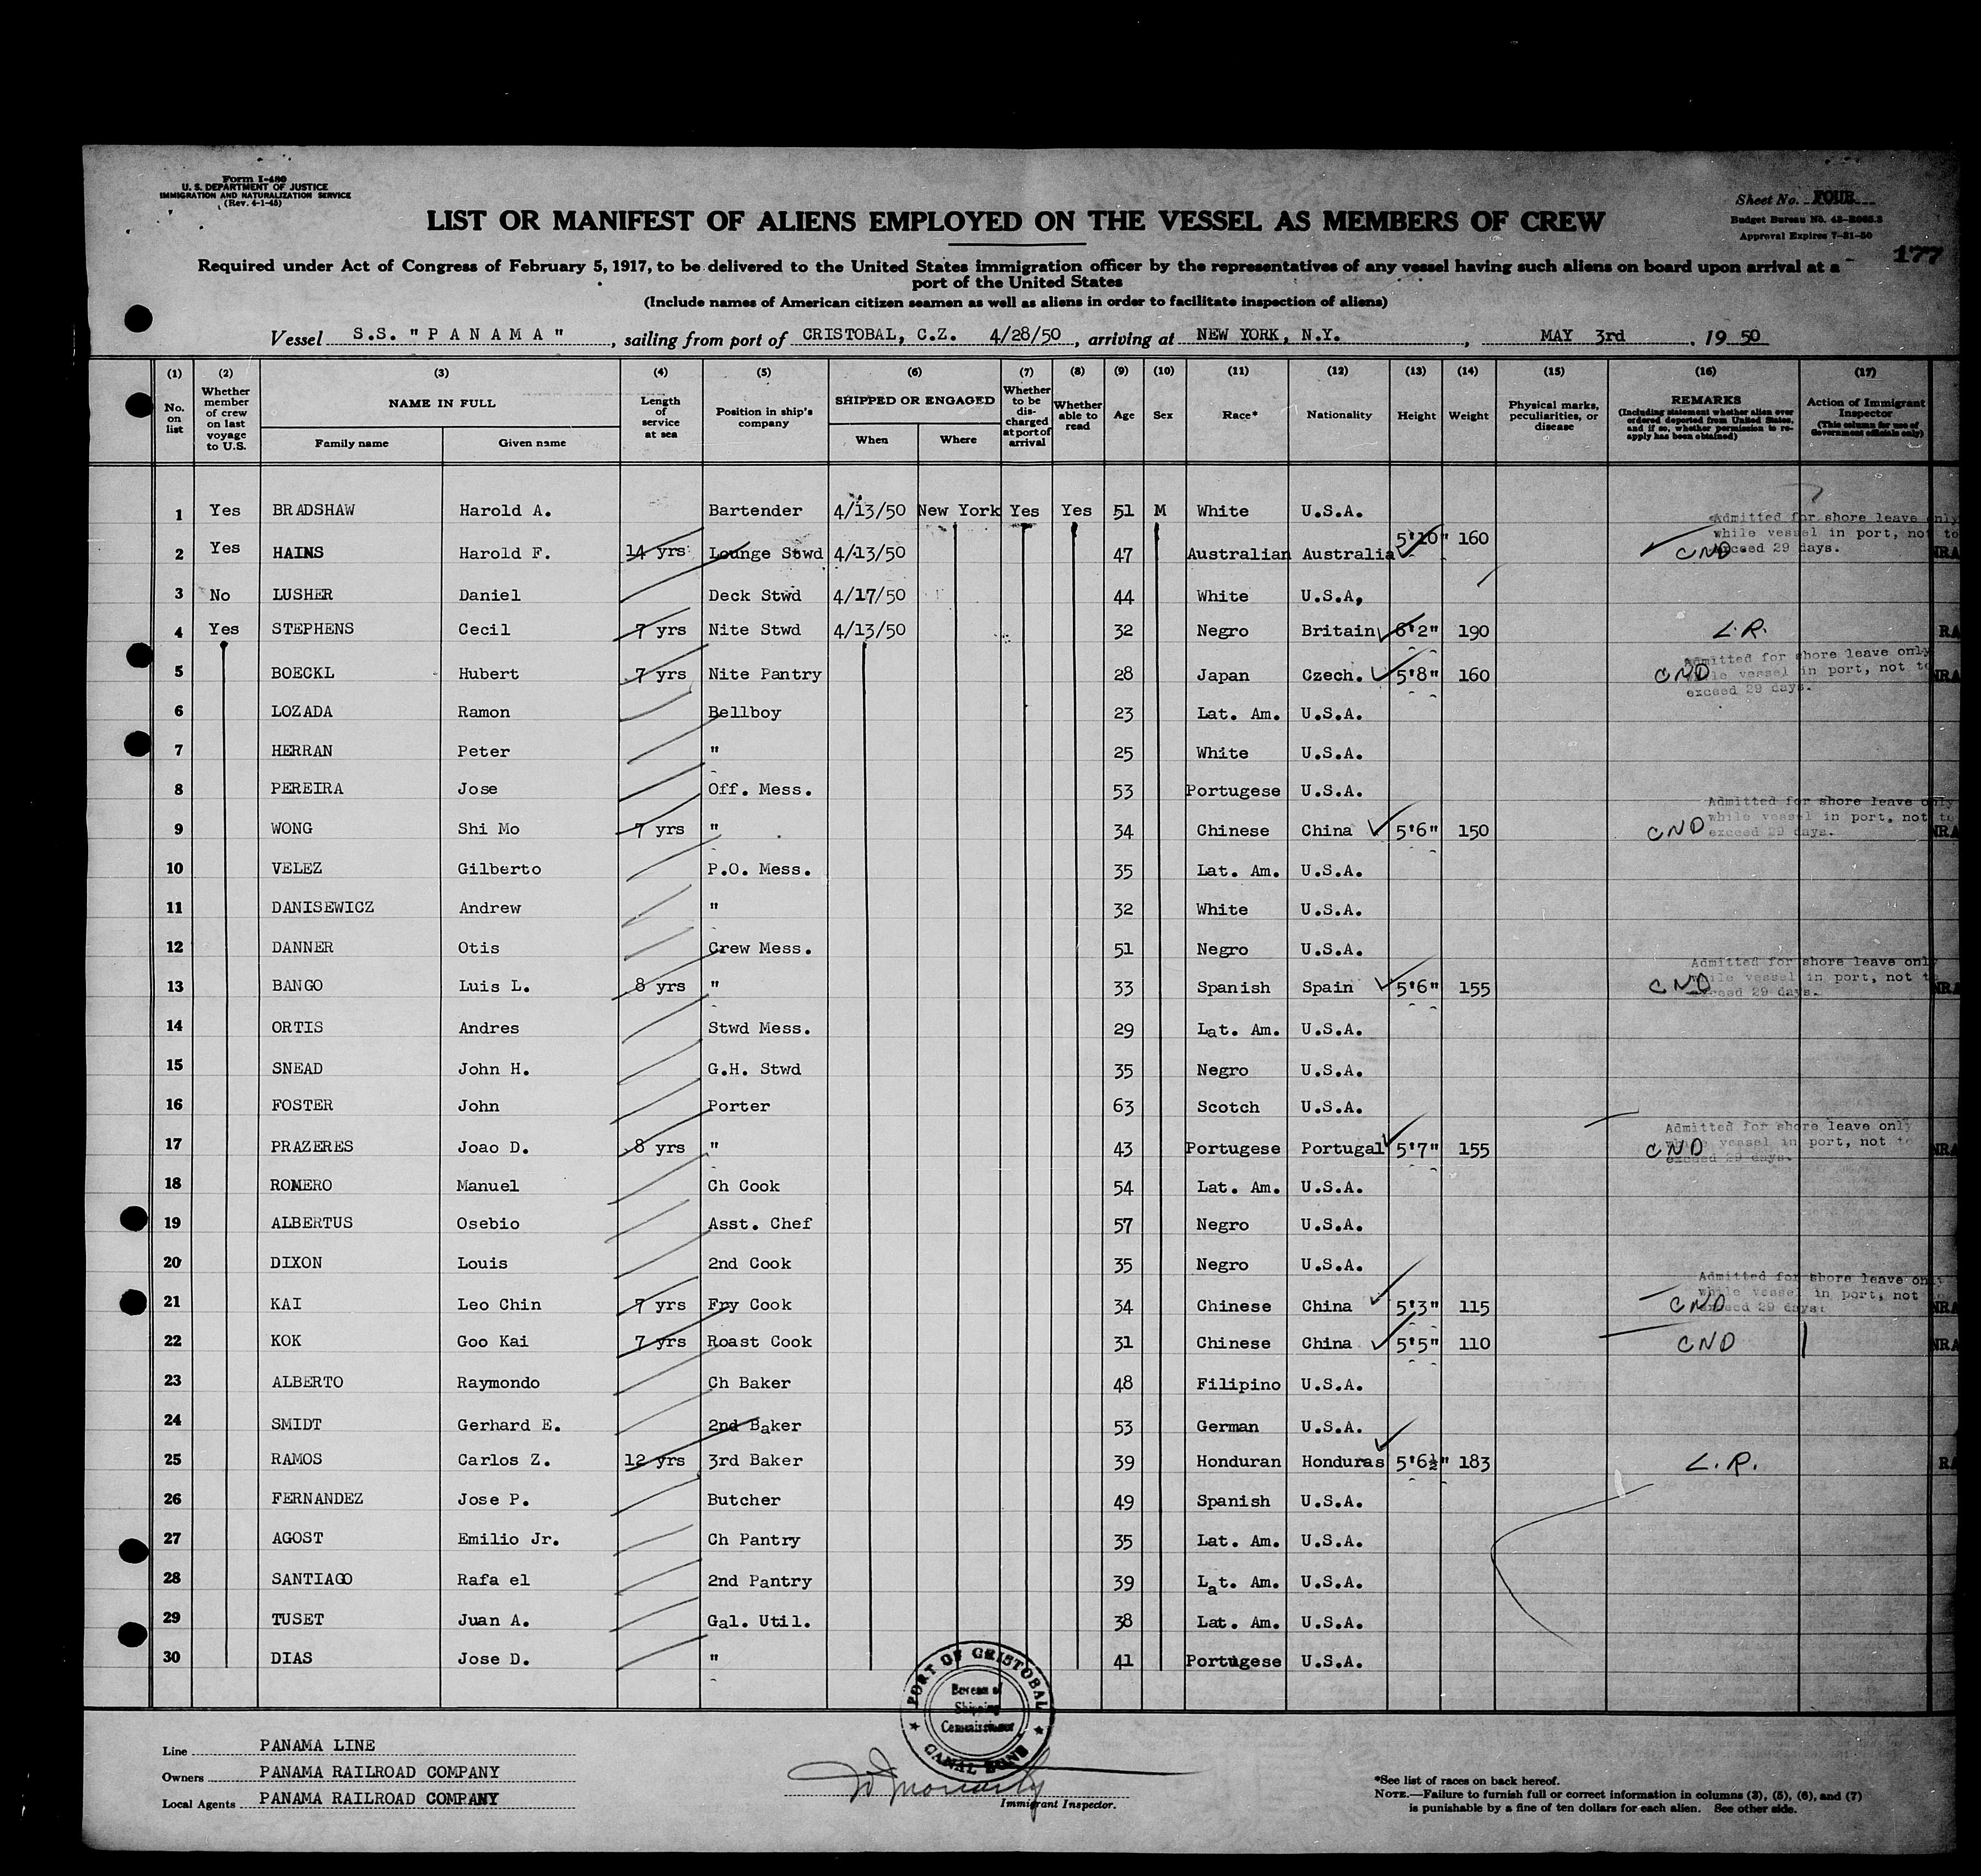 Form I-480
U. S. DEPARTMENT OF JUSTICE
IMMIGRATION AND NATURALIZATION SERVICE
(Rev. 4-1-48)
Sheet No. FOUR
Approval Expires 7-31-50
177
LIST OR MANIFEST OF ALIENS EMPLOYED ON THE VESSEL AS MEMBERS OF CREW
Required under Act of Congress of February 5, 1917, to be delivered to the United States immigration officer by the representatives of any vessel having such aliens on board upon arrival at a
port of the United States
(Include names of American citizen seamen as well as aliens in order to facilitate inspection of aliens)
Vessel S.S. "P A N A M A", sailing from port of CRISTOBAL, C.Z. 4/28/50, arriving at NEW YORK, N.Y., MAY 3rd, 19 50
(1) (2) (3) (4) (5) (6) (7) (8) (9) (10) (11) (12) (13) (14) (15) (16) (17)
No. on list
Whether member of crew on last voyage to U.S.
NAME IN FULL
Family name Given name
Length of service at sea
Position in ship's company
SHIPPED OR ENGAGED
When Where
Whether to be discharged at port of arrival
Whether able to read
Age Sex Race* Nationality Height Weight
Physical marks, peculiarities, or disease
REMARKS
(Including statement whether alien ever ordered deported from United States, and if so, whether permission to reapply has been obtained)
Action of Immigrant Inspector
(This column for use of Government officials only)
1 Yes BRADSHAW Harold A. Bartender 4/13/50 New York Yes Yes 51 M White U.S.A.
2 Yes HAINS Harold F. 14 yrs Lounge Stwd 4/13/50 47 Australian Australia 5'10" 160 CND Admitted for shore leave only while vessel in port, not to exceed 29 days. NRA
3 No LUSHER Daniel Deck Stwd 4/17/50 44 White U.S.A,
4 Yes STEPHENS Cecil 7 yrs Nite Stwd 4/13/50 32 Negro Britain 6'2" 190 L.R. RA
5 BOECKL Hubert 7 yrs Nite Pantry 28 Japan Czech. 5'8" 160 CND Admitted for shore leave only while vessel in port, not to exceed 29 days. NRA
6 LOZADA Ramon Bellboy 23 Lat. Am. U.S.A.
7 HERRAN Peter " 25 White U.S.A.
8 PEREIRA Jose Off. Mess. 53 Portugese U.S.A.
9 WONG Shi Mo 7 yrs " 34 Chinese China 5'6" 150 CND Admitted for shore leave only while vessel in port, not to exceed 29 days. NRA
10 VELEZ Gilberto P.O. Mess. 35 Lat. Am. U.S.A.
11 DANISEWICZ Andrew " 32 White U.S.A.
12 DANNER Otis Crew Mess. 51 Negro U.S.A.
13 BANGO Luis L. 8 yrs " 33 Spanish Spain 5'6" 155 CND Admitted for shore leave only while vessel in port, not to exceed 29 days. NRA
14 ORTIS Andres Stwd Mess. 29 Lat. Am. U.S.A.
15 SNEAD John H. G.H. Stwd 35 Negro U.S.A.
16 FOSTER John Porter 63 Scotch U.S.A.
17 PRAZERES Joao D. 8 yrs " 43 Portugese Portugal 5'7" 155 CND Admitted for shore leave only while vessel in port, not to exceed 29 days. NRA
18 ROMERO Manuel Ch Cook 54 Lat. Am. U.S.A.
19 ALBERTUS Osebio Asst. Chef 57 Negro U.S.A.
20 DIXON Louis 2nd Cook 35 Negro U.S.A.
21 KAI Leo Chin 7 yrs Fry Cook 34 Chinese China 5'3" 115 CND Admitted for shore leave only while vessel in port, not to exceed 29 days. NRA
22 KOK Goo Kai 7 yrs Roast Cook 31 Chinese China 5'5" 110 CND NRA
23 ALBERTO Raymondo Ch Baker 48 Filipino U.S.A.
24 SMIDT Gerhard E. 2nd Baker 53 German U.S.A.
25 RAMOS Carlos Z. 12 yrs 3rd Baker 39 Honduran Honduras 5'6½" 183 L.R. RA
26 FERNANDEZ Jose P. Butcher 49 Spanish U.S.A.
27 AGOST Emilio Jr. Ch Pantry 35 Lat. Am. U.S.A.
28 SANTIAGO Rafa el 2nd Pantry 39 Lat. Am. U.S.A.
29 TUSET Juan A. Gal. Util. 38 Lat. Am. U.S.A.
30 DIAS Jose D. " 41 Portugese U.S.A.
PORT OF CRISTOBAL
Bureau of
Shipping
Commissioner
CANAL ZONE
Line PANAMA LINE
Owners PANAMA RAILROAD COMPANY
Local Agents PANAMA RAILROAD COMPANY
Immigrant Inspector.
*See list of races on back hereof.
NOTE.—Failure to furnish full or correct information in columns (3), (5), (6), and (7)
is punishable by a fine of ten dollars for each alien. See other side.